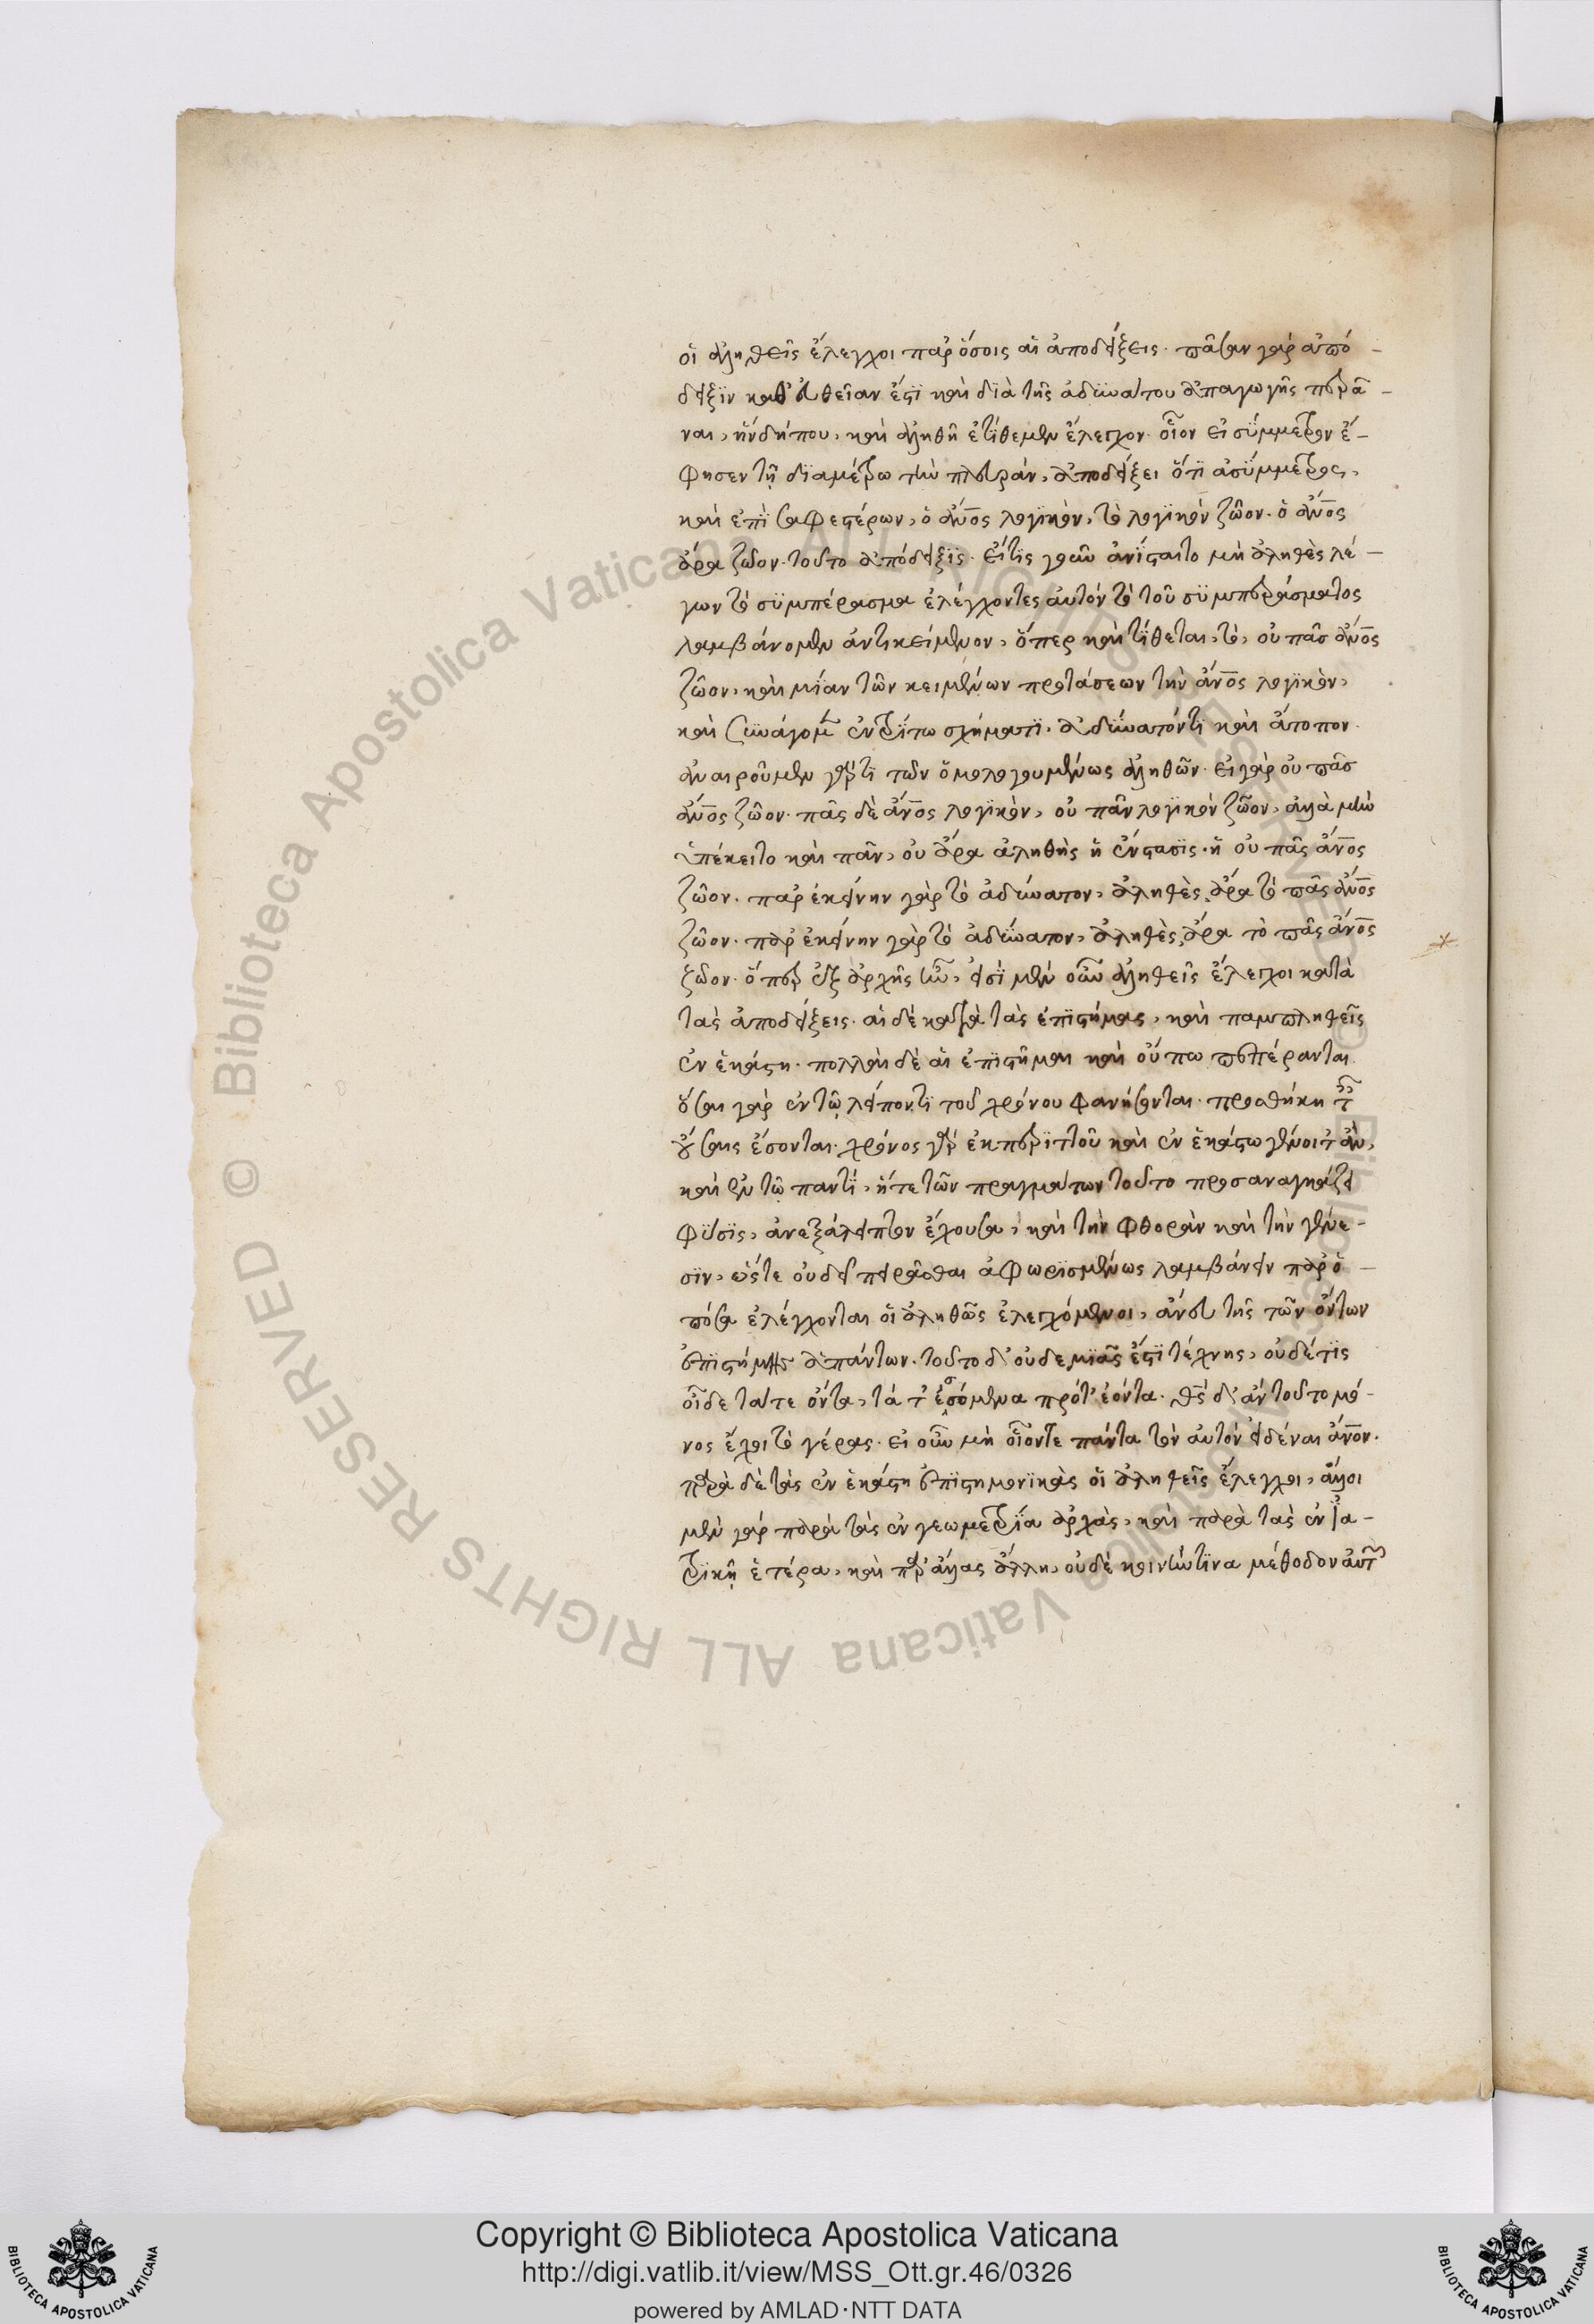 οἱ ἀληθεῖς ἔλεγχοι παρ' ὅσοις αἱ ἀποδείξεις· πᾶσαν γὰρ ἀπό-
δειξϊν κατ' εὐθεῖαν ἔστϊ καὶ δϊὰ τῆς ἀδϋνάτου ἀπαγωγῆς περᾶ-
ναι, ἣν δήπου, καὶ ἀληθῆ ἐτίθεμεν ἔλεγχον· οἷον εἰ σύμμετρον ἔ-
φησεν τῆ δϊαμέτρω τὴν πλευράν, ἀποδείξει ὅτϊ ἀσύμμετρος,
καὶ ἐπὶ σαφεστέρων, ὁ ἄνος λογϊκὸν, τὸ λογϊκὸν ζῶον· ὁ ἄνος
ἄρα ζῶον· τοῦτο ἀπόδειξϊς· εἴ τϊς γοῦν ἀνίσταιτο μὴ ἀληθὲς λέ-
γων τὸ σϋμπέρασμα ἐλέγχοντες αὐτὸν τὸ τοῦ σϋμπεράσματος
λαμβάνομεν ἀντικείμενον, ὅπερ καὶ τίθεται, τὸ, οὐ πᾶσ ἄνος
ζῶον, καὶ μίαν τῶν κειμένων προτάσεων τὴν ἄνος λογϊκὸν,
καὶ συνάγομεν ἐν τρίτω σχήματϊ· ἀδύνατόν τϊ καὶ ἄτοπον·
ἀναιροῦμεν γάρ τϊ τῶν ὁμολογουμένως ἀληθῶν· εἰ γὰρ οὐ πᾶσ
ἄνος ζῶον· πᾶς δὲ ἄνος λογϊκὸν, οὐ πᾶν λογϊκὸν ζῶον, ἀλλὰ μὴν
ὑπέκειτο καὶ πᾶν, οὐ ἄρα ἀληθὴς ἡ ἔνστασϊς· ἡ οὐ πᾶς ἄνος
ζῶον· παρ' ἐκείνην γὰρ τὸ ἀδύνατον, ἀληθὲς ἄρα τὸ πᾶς ἄνος
ζῶον· παρ' ἐκείνην γὰρ τὸ ἀδύνατον, ἀληθὲς ἄρα τὸ πᾶς ἄνος
ζῶον· ὅπερ ἐξ ἀρχῆς ἦν, εἰσὶ μὲν οὖν ἀληθεῖς ἔλεγχοι κατὰ
τὰς ἀποδείξεις· αἱ δὲ κατὰ τὰς ἐπϊστήμας, καὶ παμπληθεῖς
ἐν ἑκάστη· πολλαὶ δὲ αἱ ἐπϊστῆμαι καὶ οὔπω πεπέρανται
οὖσαι γὰρ ἐν τῶ λείποντϊ τοῦ χρόνου φανήσονται· προσθήκη
οὔσαις ἔσονται· χρόνος γὰρ ἐκ περϊττοῦ καὶ ἐν ἑκάστω γένοιτ' ἂν,
καὶ ἐν τῶ παντί, ἥ τε τῶν πραγμάτων τοῦτο προσαναγκάζει
φύσϊς, ἀνεξάλειπτον ἔχουσα, καὶ τὴν φθορὰν καὶ τὴν γένε-
σϊν, ὥστε οὐ δεῖ πειρᾶσθαι ἀφωρϊσμένως λαμβάνειν παρ' ὁ-
πόσα ἐλέγχονται οἱ ἀληθῶς ἐλεγχόμενοι, ἄνευ τῆς τῶν ὄντων
ἐπϊστήμης ἁπάντων· τοῦτο δ' οὐδεμϊᾶς ἔστϊ τέχνης, οὐδέ τϊς
οἶδε τά τε ὄντα, τά τ' ἐσσόμενα πρό τ' ἐόντα· θς δ' ἂν τοῦτο μό-
νος ἔχοι τὸ γέρας· εἰ οὖν μὴ οἷόν τε πάντα τὸν αὐτὸν εἰδέναι ἄνον·
παρὰ δὲ τὰς ἐν ἑκάστη ἐπϊστημονϊκὰς οἱ ἀληθεῖς ἔλεγχοι, ἄλλοι
μὲν γὰρ παρὰ τὰς ἐν γεωμετρία ἀρχὰς, καὶ παρὰ τὰς ἐν ἰα-
τρϊκῆ ἑτέρα, καὶ παρ' ἄλλας ἄλλη, οὐδὲ κοινήν τϊνα μέθοδον
Copyright © Biblioteca Apostolica Vaticana
http://digi.vatlib.it/view/MSS_Ott.gr.46/0326
powered by AMLAD·NTT DATA
BIBLIOTECA APOSTOLICA VATICANA
BIBLIOTECA APOSTOLICA VATICANA
© Biblioteca Apostolica Vaticana ALL RIGHTS RESERVED
© Biblioteca Apostolica Vaticana ALL RIGHTS RESERVED